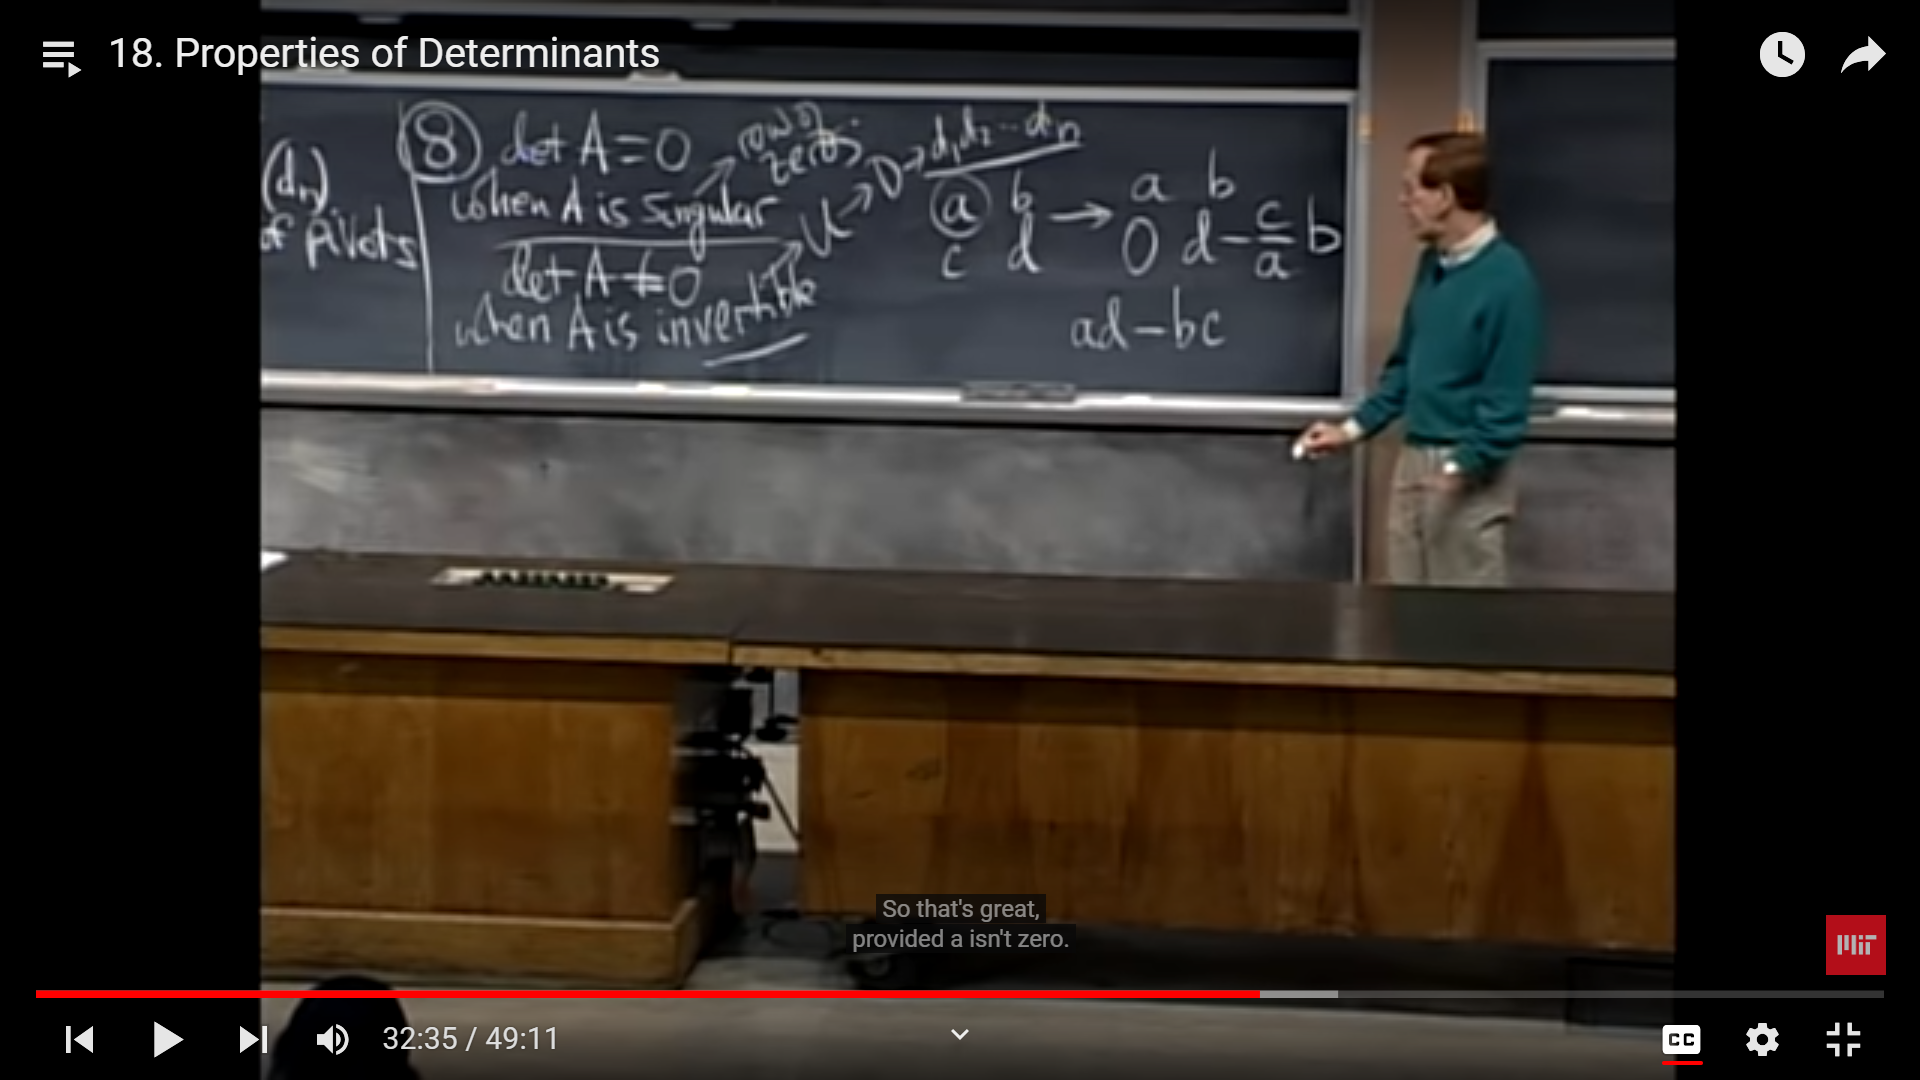 18. Properties of Determinants
(dn)
of pivots
8 det A = 0
when A is singular
row of
zeros
det A ≠ 0
when A is invertible
→ U → D → d₁d₂ ... dn
a b → a b
c d 0 d - c/a b
ad - bc
So that's great,
provided a isn't zero.
MiT
32:35 / 49:11
CC